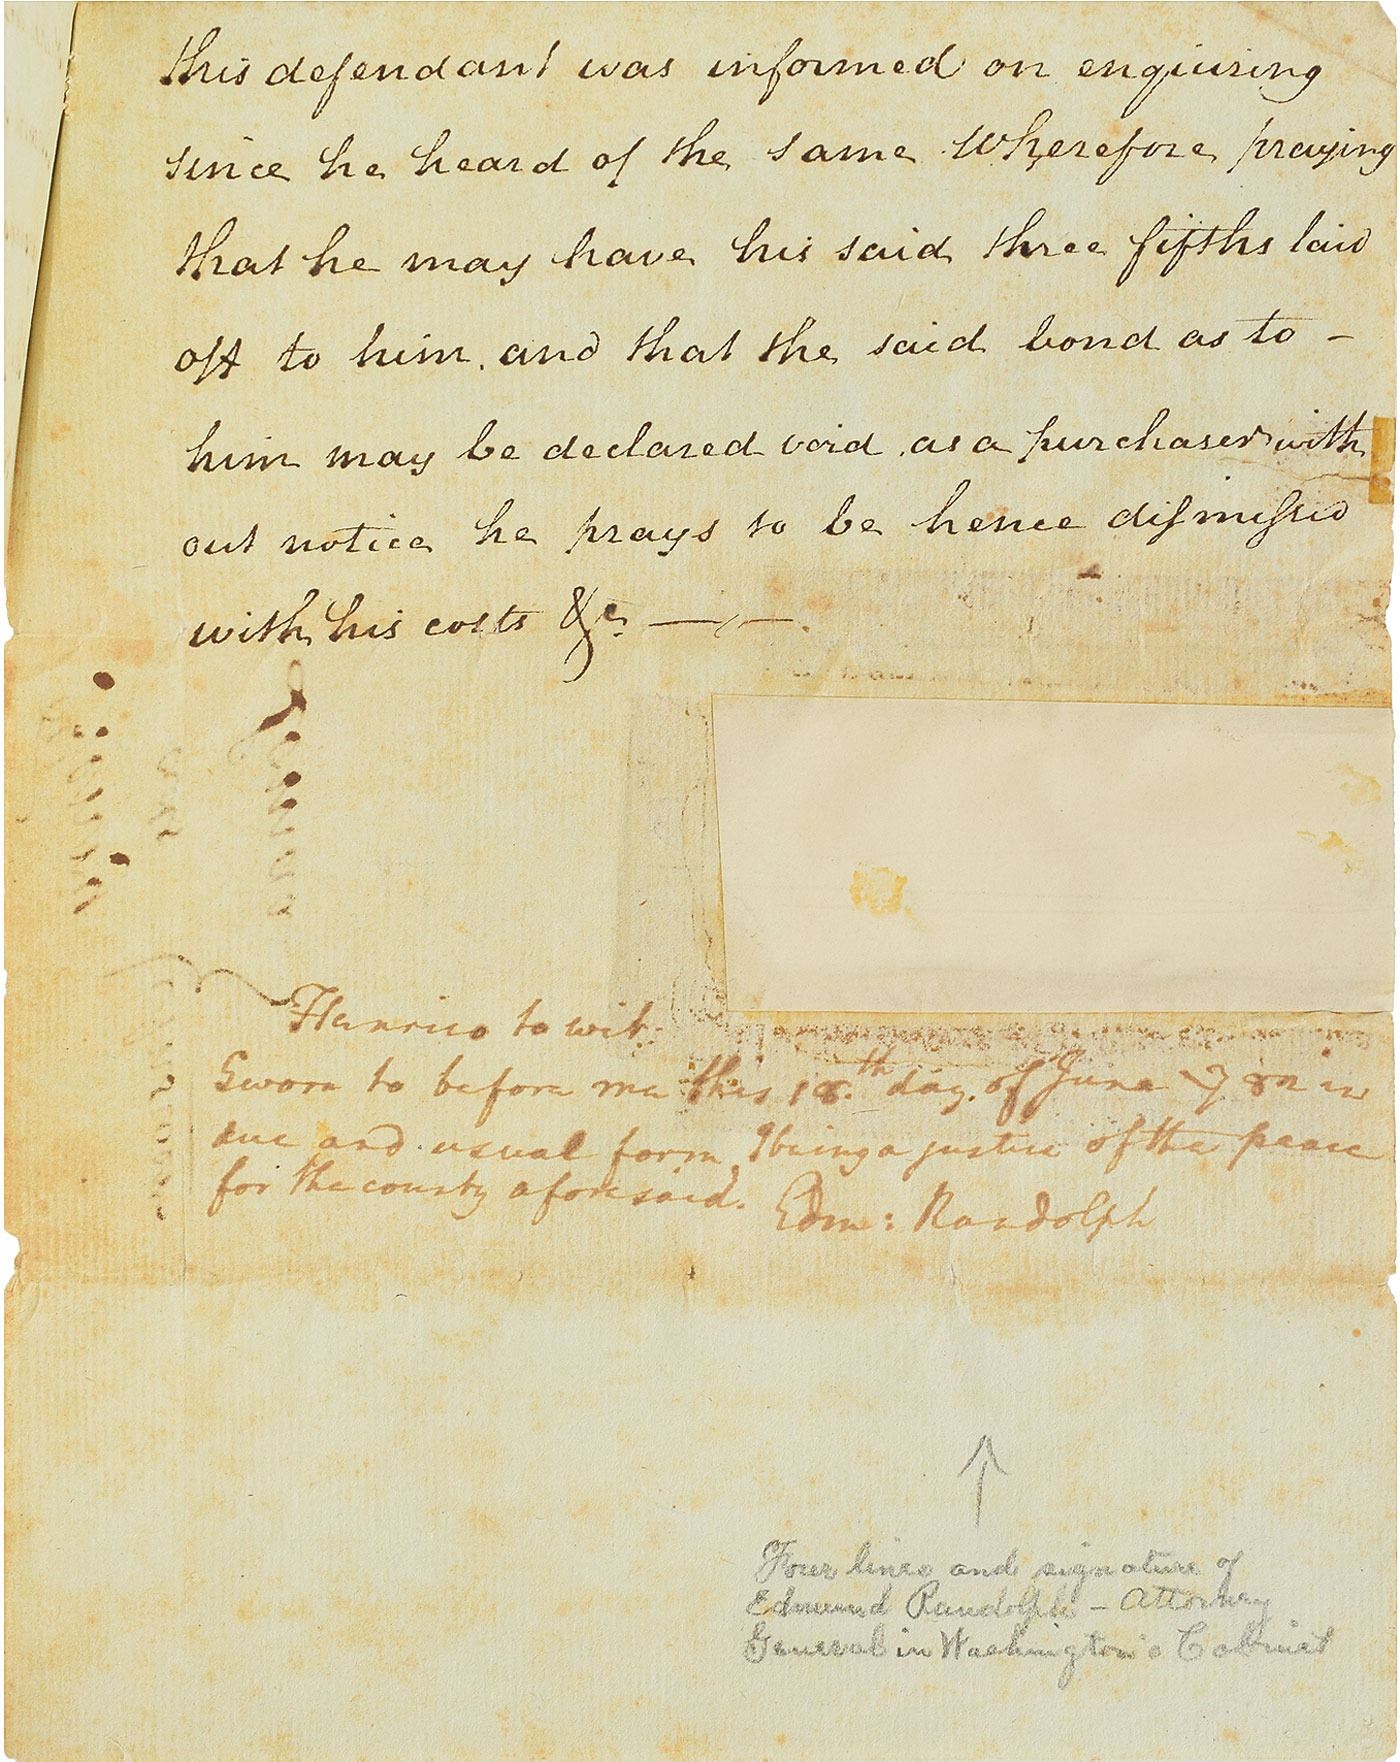 this defendant was informed on enquiring
since he heard of the same Wherefore praying
that he may have his said three fifths laid
off to him. and that the said bond as to –
him may be declared void. as a purchaser with
out notice he prays to be hence dismissed
with his costs &c. —,,—.
Henrico to wit.
Sworn to before me this 18.th day. of June 782 in
due and usual form, I being a justice of the peace
for the county aforesaid.
Edm: Randolph
Four lines and signature of
Edmund Randolph – Attorney
General in Washington's Cabinet